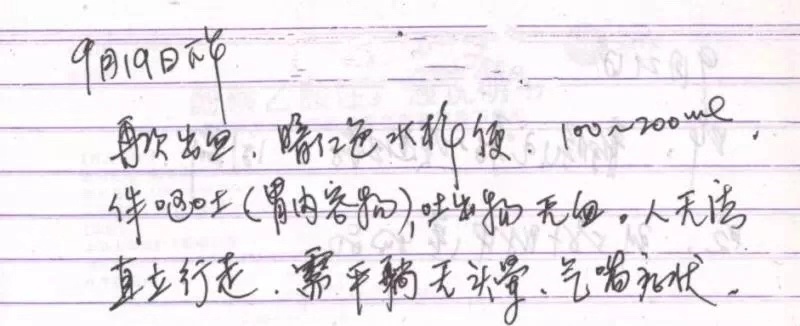 9月19日下午
再次出血，暗红色水样便，100~200ml，
伴呕吐(胃内容物)，吐出物无血。人无法
直立行走，需平躺无头晕、气喘症状。